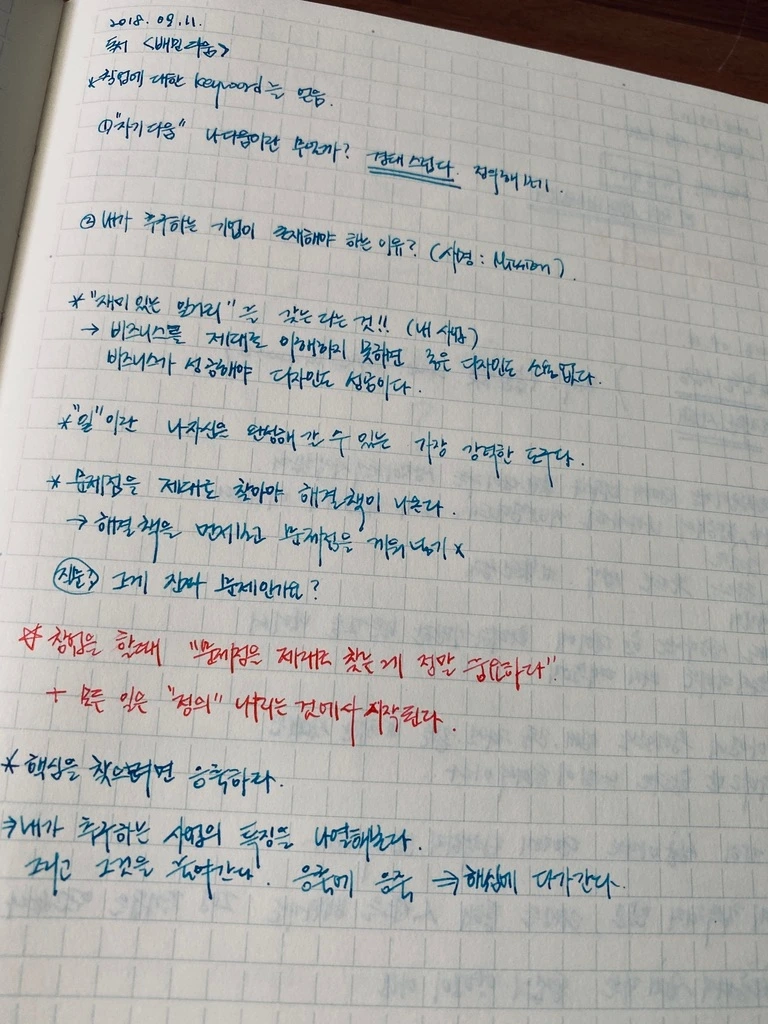 2018. 09. 11.
독서 <배민다움>
* 창업에 대한 keyword를 얻음.
① "자기다움" 나다움이란 무엇인가? 경태스럽다. 정의해보기.
② 내가 추구하는 기업이 존재해야 하는 이유? (사명 : Mission).
* "재미있는 일거리"를 갖는다는 것!! (내 사업)
→ 비즈니스를 제대로 이해하지 못하면 좋은 디자인도 소용없다.
비즈니스가 성공해야 디자인도 성공이다.
* "일"이란 나자신을 완성해 갈 수 있는 가장 강력한 도구다.
* 문제점을 제대로 찾아야 해결책이 나온다.
→ 해결책을 먼저쓰고 문제점을 끼워넣기 x
질문? 그게 진짜 문제인가요?
* 창업을 할때 "문제점을 제대로 찾는게 정말 중요하다".
+ 모든 일은 "정의" 내리는 것에서 시작된다.
* 핵심을 찾으려면 응축하라.
⇒ 내가 추구하는 사업의 특징을 나열해본다.
그리고 그것을 줄여간다. 응축에 응축 ⇒ 핵심에 다가간다.